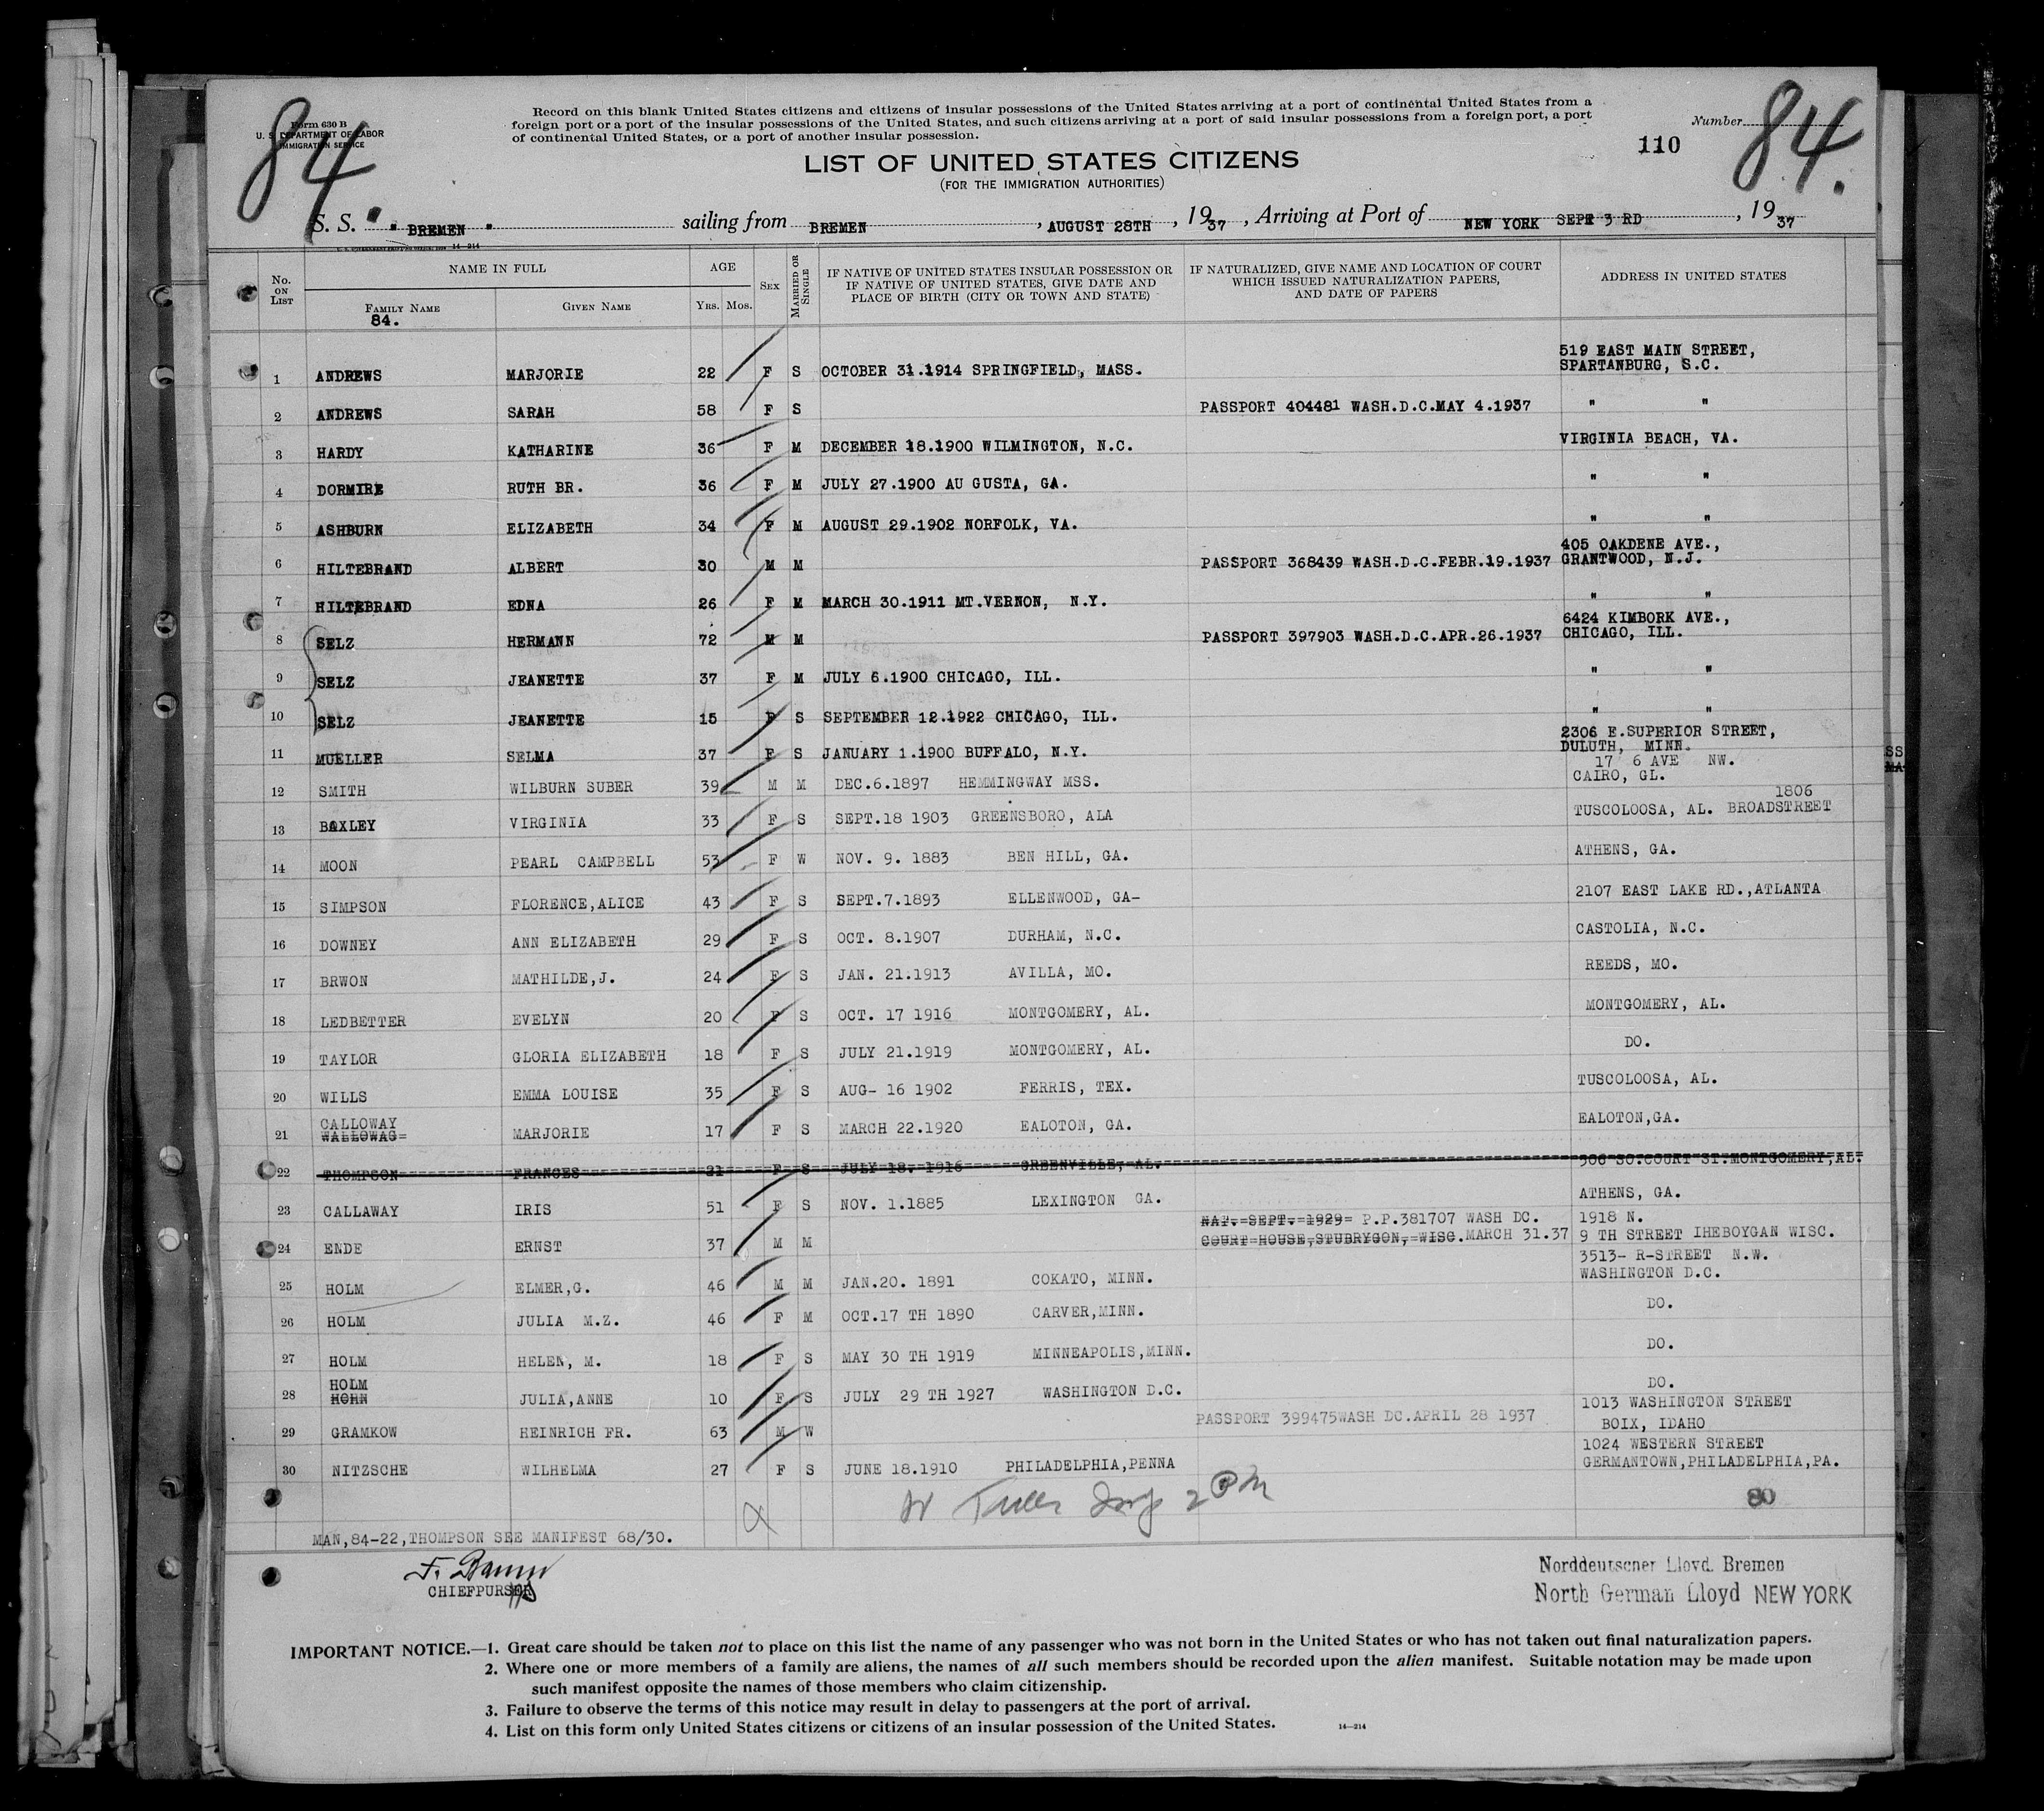 84.
84.
Form 630 B
U. S. DEPARTMENT OF LABOR
IMMIGRATION SERVICE
Record on this blank United States citizens and citizens of insular possessions of the United States arriving at a port of continental United States from a
foreign port or a port of the insular possessions of the United States, and such citizens arriving at a port of said insular possessions from a foreign port, a port
of continental United States, or a port of another insular possession.
Number
110
LIST OF UNITED STATES CITIZENS
(FOR THE IMMIGRATION AUTHORITIES)
S. S. " BREMEN " sailing from BREMEN , AUGUST 28TH , 1937 , Arriving at Port of NEW YORK SEPT 3 RD , 1937
14-214
No. ON LIST
NAME IN FULL
FAMILY NAME
GIVEN NAME
AGE
YRS. MOS.
SEX
MARRIED OR SINGLE
IF NATIVE OF UNITED STATES INSULAR POSSESSION OR
IF NATIVE OF UNITED STATES, GIVE DATE AND
PLACE OF BIRTH (CITY OR TOWN AND STATE)
IF NATURALIZED, GIVE NAME AND LOCATION OF COURT
WHICH ISSUED NATURALIZATION PAPERS,
AND DATE OF PAPERS
ADDRESS IN UNITED STATES
84.
519 EAST MAIN STREET,
1 ANDREWS MARJORIE 22 F S OCTOBER 31.1914 SPRINGFIELD, MASS. SPARTANBURG, S.C.
2 ANDREWS SARAH 58 F S PASSPORT 404481 WASH.D.C.MAY 4.1937 " "
3 HARDY KATHARINE 36 F M DECEMBER 18.1900 WILMINGTON, N.C. VIRGINIA BEACH, VA.
4 DORMIRE RUTH BR. 36 F M JULY 27.1900 AU GUSTA, GA. " "
5 ASHBURN ELIZABETH 34 F M AUGUST 29.1902 NORFOLK, VA. " "
405 OAKDENE AVE.,
6 HILTEBRAND ALBERT 30 M M PASSPORT 368439 WASH.D.C.FEBR.19.1937 GRANTWOOD, N.J.
7 HILTEBRAND EDNA 26 F M MARCH 30.1911 MT.VERNON, N.Y. " "
6424 KIMBORK AVE.,
8 SELZ HERMANN 72 M M PASSPORT 397903 WASH.D.C.APR.26.1937 CHICAGO, ILL.
9 SELZ JEANETTE 37 F M JULY 6.1900 CHICAGO, ILL. " "
10 SELZ JEANETTE 15 F S SEPTEMBER 12.1922 CHICAGO, ILL. " "
2306 E.SUPERIOR STREET,
11 MUELLER SELMA 37 F S JANUARY 1.1900 BUFFALO, N.Y. DULUTH, MINN.
17 6 AVE NW.
12 SMITH WILBURN SUBER 39 M M DEC.6.1897 HEMMINGWAY MSS. CAIRO, GL.
1806
13 BAXLEY VIRGINIA 33 F S SEPT.18 1903 GREENSBORO, ALA TUSCOLOOSA, AL. BROADSTREET
14 MOON PEARL CAMPBELL 53 F W NOV. 9. 1883 BEN HILL, GA. ATHENS, GA.
15 SIMPSON FLORENCE,ALICE 43 F S SEPT.7.1893 ELLENWOOD, GA- 2107 EAST LAKE RD.,ATLANTA
16 DOWNEY ANN ELIZABETH 29 F S OCT. 8.1907 DURHAM, N.C. CASTOLIA, N.C.
17 BRWON MATHILDE,J. 24 F S JAN. 21.1913 AVILLA, MO. REEDS, MO.
18 LEDBETTER EVELYN 20 F S OCT. 17 1916 MONTGOMERY, AL. MONTGOMERY, AL.
19 TAYLOR GLORIA ELIZABETH 18 F S JULY 21.1919 MONTGOMERY, AL. DO.
20 WILLS EMMA LOUISE 35 F S AUG- 16 1902 FERRIS, TEX. TUSCOLOOSA, AL.
CALLOWAY
21 WALLOWAG MARJORIE 17 F S MARCH 22.1920 EALOTON, GA. EALOTON,GA.
22 THOMPSON FRANCES 21 F S JULY 18. 1916 GREENVILLE, AL. 506 SO.COURT ST.MONTGOMERY,AL.
23 CALLAWAY IRIS 51 F S NOV. 1.1885 LEXINGTON GA. ATHENS, GA.
NAT. SEPT. 1929 P.P.381707 WASH DC. 1918 N.
24 ENDE ERNST 37 M M COURT HOUSE,STUBRYGON, WISC.MARCH 31.37 9 TH STREET IHEBOYGAN WISC.
3513- R-STREET N.W.
25 HOLM ELMER,G. 46 M M JAN.20. 1891 COKATO, MINN. WASHINGTON D.C.
26 HOLM JULIA M.Z. 46 F M OCT.17 TH 1890 CARVER,MINN. DO.
27 HOLM HELEN, M. 18 F S MAY 30 TH 1919 MINNEAPOLIS,MINN. DO.
HOLM
28 HOHN JULIA,ANNE 10 F S JULY 29 TH 1927 WASHINGTON D.C. DO.
1013 WASHINGTON STREET
29 GRAMKOW HEINRICH FR. 63 M W PASSPORT 399475WASH DC.APRIL 28 1937 BOIX, IDAHO
1024 WESTERN STREET
30 NITZSCHE WILHELMA 27 F S JUNE 18.1910 PHILADELPHIA,PENNA GERMANTOWN,PHILADELPHIA,PA.
80
MAN,84-22,THOMPSON SEE MANIFEST 68/30.
CHIEFPURSER
Norddeutscher Lloyd Bremen
North German Lloyd NEW YORK
IMPORTANT NOTICE.—1. Great care should be taken not to place on this list the name of any passenger who was not born in the United States or who has not taken out final naturalization papers.
2. Where one or more members of a family are aliens, the names of all such members should be recorded upon the alien manifest. Suitable notation may be made upon
such manifest opposite the names of those members who claim citizenship.
3. Failure to observe the terms of this notice may result in delay to passengers at the port of arrival.
4. List on this form only United States citizens or citizens of an insular possession of the United States.
14—214